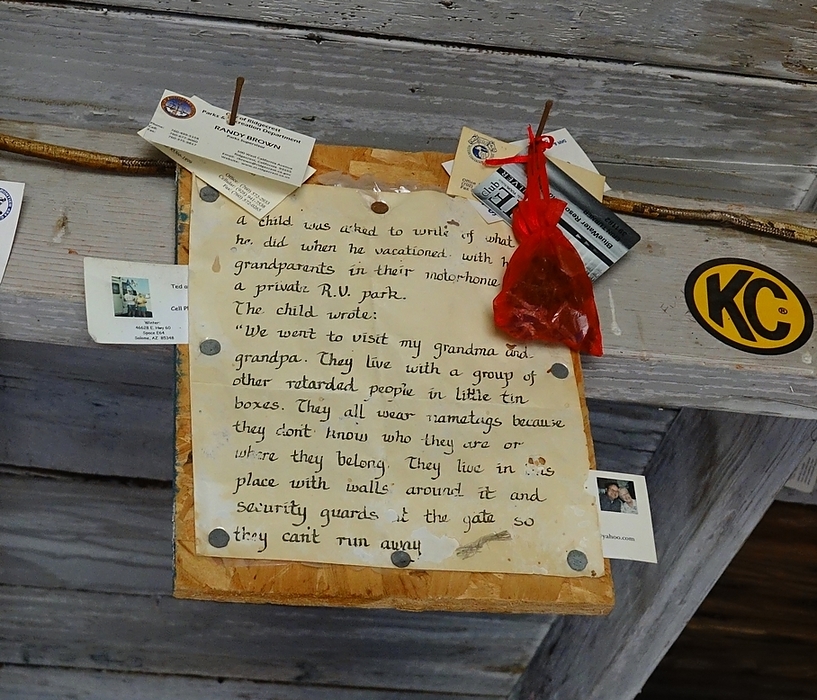 City of Ridgecrest
Parks & Recreation Department
RANDY BROWN
Parks Supervisor
club
BlueWater Reso
KC
®
Ted
Cell Ph
Winter:
46628 E. Hwy 60
Space E64
Salome, AZ. 85348
yahoo.com
a child was asked to write of what
he did when he vacationed with h
grandparents in their motorhome
a private R.V. park.
The child wrote:
"We went to visit my grandma and
grandpa. They live with a group of
other retarded people in little tin
boxes. They all wear nametags because
they don't know who they are or
where they belong. They live in this
place with walls around it and
security guards at the gate so
they can't run away